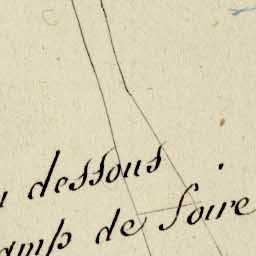 u dessous
amp de foire